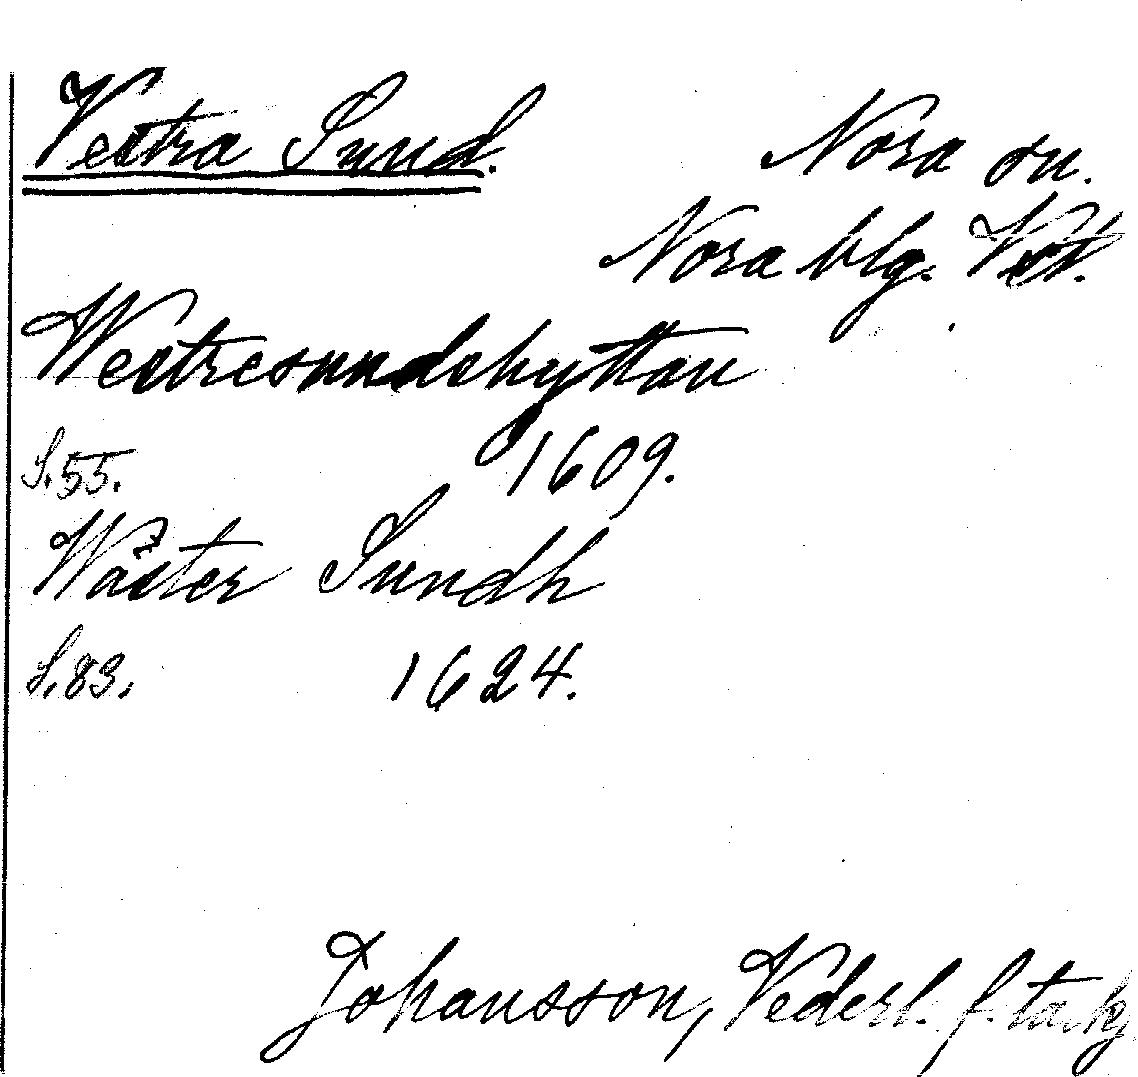 Vestra Sund.
Nora sn.
Nora blg. Vstl.
Westresundshyttan
S.55. 1609.
Wäster Sundh
S.83. 1624.
Johansson, Vederl. f. tackj